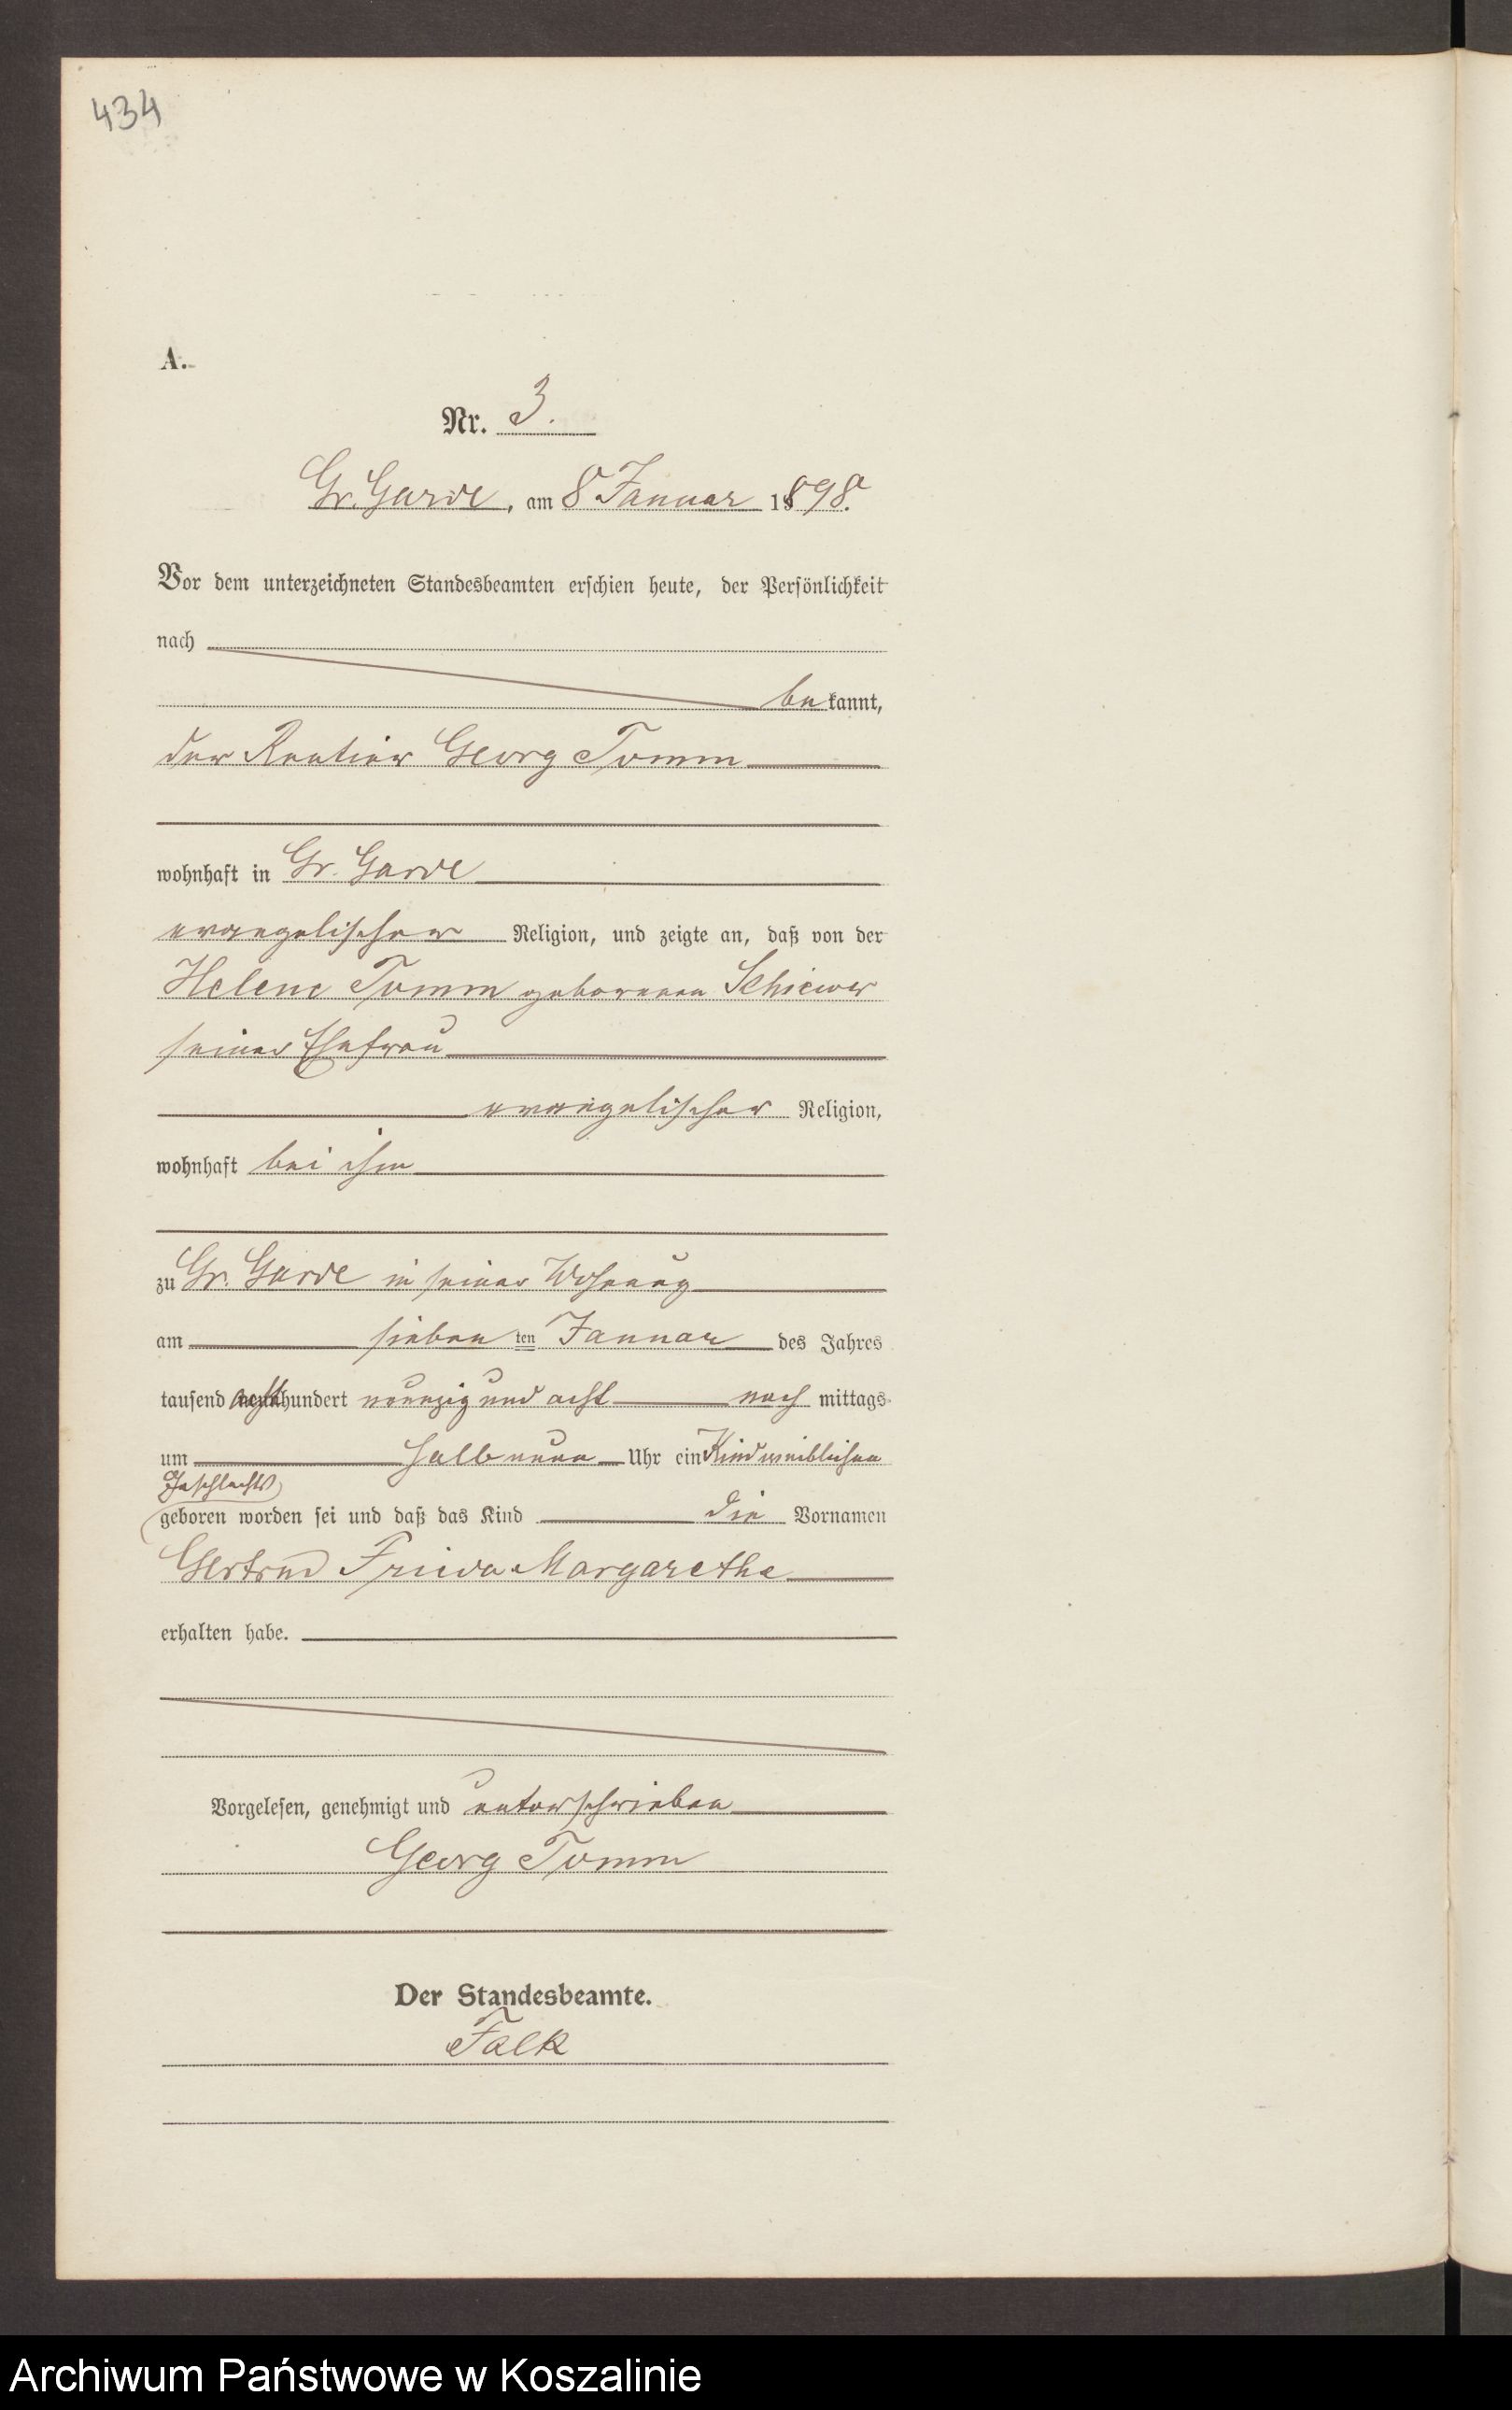 434
A.
Nr. 3.
Gr. Garde, am 8 Januar 1898.
Vor dem unterzeichneten Standesbeamten erschien heute, der Persönlichkeit
nach
be kannt,
der Rentier Georg Tomm
wohnhaft in Gr. Garde
evangelischer Religion, und zeigte an, daß von der
Helene Tomm geborenen Schiewer
seiner Ehefrau
evangelischer Religion,
wohnhaft bei ihm
zu Gr. Garde in seiner Wohnung
am sieben ten Januar des Jahres
tausend acht hundert neunzig und acht nach mittags
um halb neun Uhr ein Kind weiblichen
Geschlechts
geboren worden sei und daß das Kind die Vornamen
Gertrud Frieda Margarethe
erhalten habe.
Vorgelesen, genehmigt und unterschrieben
Georg Tomm
Der Standesbeamte.
Falk
Archiwum Państwowe w Koszalinie